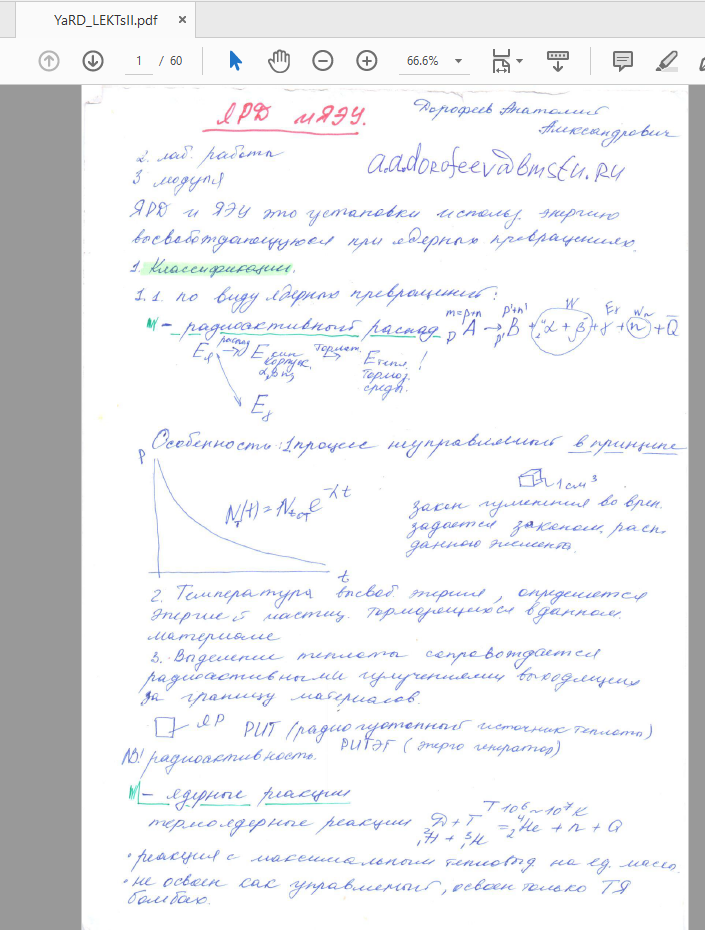 YaRD_LEKTsII.pdf ×
1 / 60 66.6%
ЯРД и ЯЭУ.
Дорофеев Анатолий
Александрович
2. лаб. работы
a.a.dorofeev@bmstu.ru
3 модуля
ЯРД и ЯЭУ это установки использ. энергию
высвобождающуюся при ядерных превращениях.
1. Классификации.
1.1. по виду ядерных превращений:
m=p+n p'+n' W Eγ Wn
– радиоактивный распад A → B + α + β + γ + n + Q
распад
Eя → E кин Тормаж. E тепл !
корпус. Тормоз.
α, β, n среды.
Eγ
Особенность: 1 процесс неуправляемый в принципе
P
1 см³
N(t) = N e^-λt
закон изменения во врем.
задается законом. расп.
данного элемента.
t
2. Температура высвоб. энергия, определяется
энергией частиц. тормозящихся в данном.
материале
3. Выделение теплоты сопровождается
радиоактивными излучениями выходящих
за границу материалов.
ЯР РИТ (радиоизотопный источник теплоты)
РИТЭГ (энерго генератор)
NB! радиоактивность.
– ядерные реакции
T 10⁶ ~ 10⁷ K
термоядерные реакции D + T = ⁴₂He + n + Q
²₁H + ³₁H
• реакция с максимальным тепловыд на ед. массы.
• не освоен как управляемый, освоен только ТЯ
бомбах.